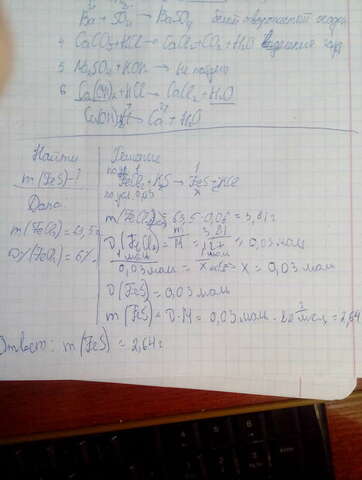 Ba²⁺ + SO₄²⁻ → BaSO₄ белый творожистый осадок
4 CaCO₃ + HCl → CaCl₂ + CO₂ + H₂O выделение газа
5 Na₂SO₄ + KOH →
6 Ca(OH)₂ + HCl → CaCl₂ + H₂O
Ca(OH)₂ → Ca²⁺ + H₂O
Найти
m(FeS)-?
Дано
m(FeCl₂) = 63,5г
ω(FeCl₂) = 6%
Решение
FeCl₂ + K₂S → FeS + KCl
m(FeCl₂) = 63,5 · 0,06 = 3,81г
ν(FeCl₂) = m/M = 3,81/127 = 0,03 моль
1 моль 1 моль
0,03 моль = x моль x = 0,03 моль
ν(FeS) = 0,03 моль
m(FeS) = ν · M = 0,03 моль · 88 г/моль = 2,64
Ответ: m(FeS) = 2,64г